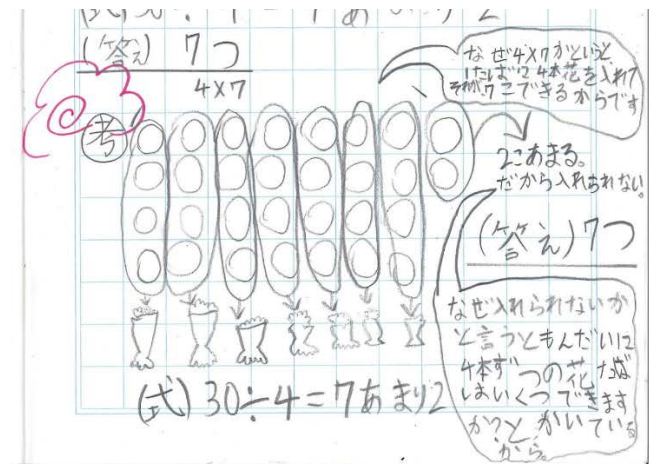 (式) 30÷4=7あまり2
(答え) 7つ
4×7
考
なぜ4×7かというと
1たばに4本花を入れて
それが7こできるからです
2こあまる。
だから入れられない。
(答え) 7つ
なぜ入れられないか
と言うともんだいに
4本ずつの花たば
はいくつできます
か?とかいている
から。
(式) 30÷4=7あまり2